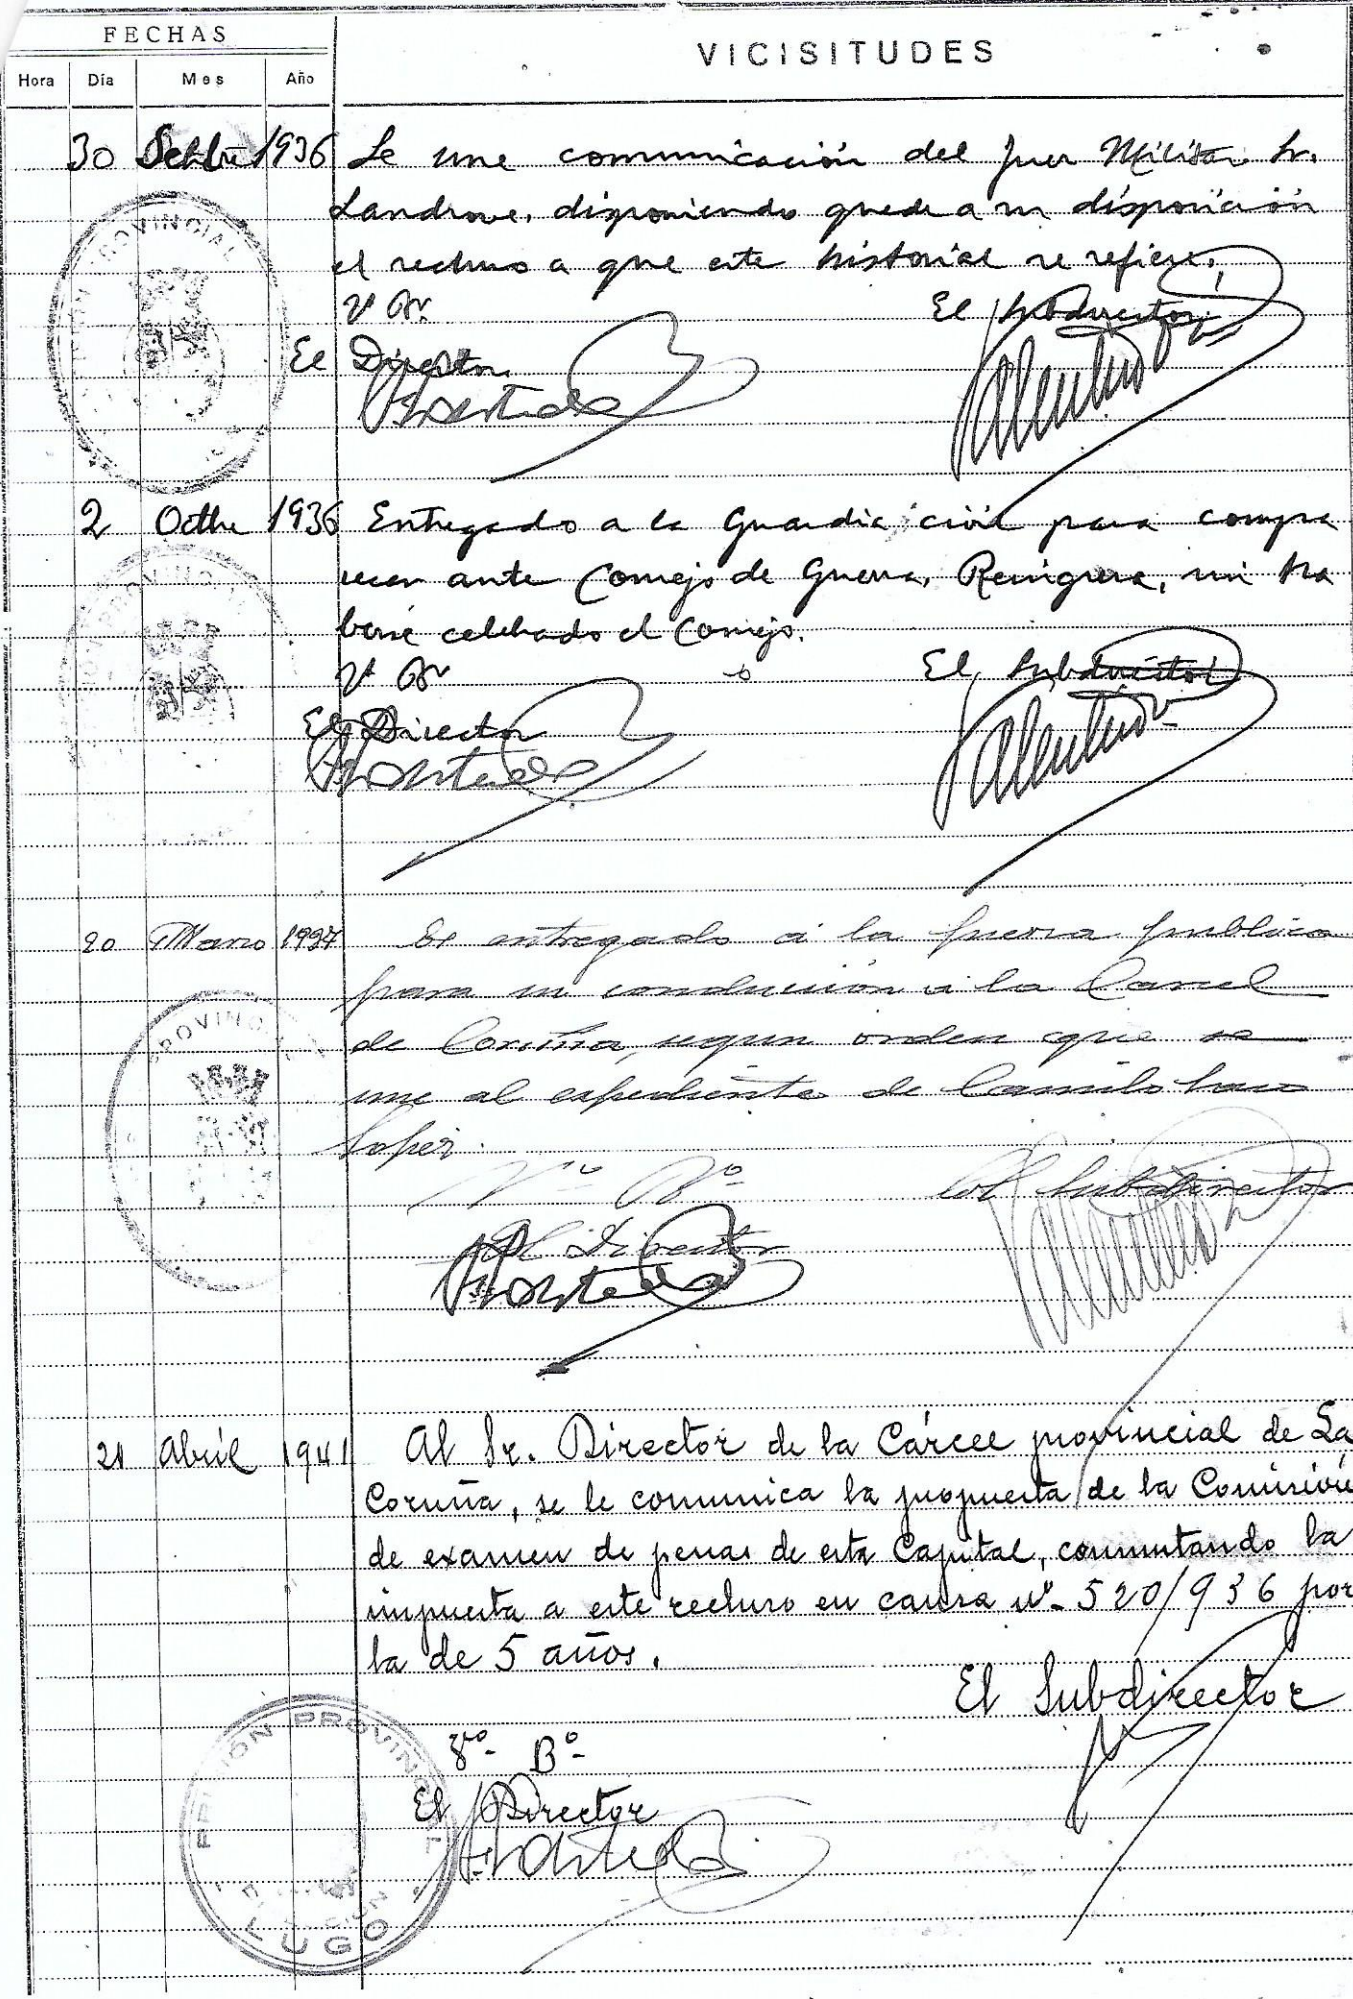 FECHAS
VICISITUDES
Hora Día Mes Año
30 Sepbre 1936 Se une comunicación del Juez Militar Sr.
Landrove, disponiendo quede a su disposición
el recluso a que este historial se refiere.
Vº Bº
El Subdirector
El Director
Valentino
PRISION PROVINCIAL
2 Octbre 1936 Entregado a la Guardia civil para compa
recer ante Consejo de Guerra. Reingresa, sin ha
berse celebrado el Consejo.
Vº Bº
El Subdirector
El Director
Valentino
PROVINCIAL
20 Marzo 1937 Es entregado á la fuerza publica
para su conducción á la Carcel
de Coruña, segun orden que se
une al expediente de Camilo
Lopez.
Vº Bº
El Subdirector
El Director
PROVINCIAL
21 Abril 1941 Al Sr. Director de la Cárcel provincial de La
Coruña, se le comunica la propuesta de la Comisión
de examen de penas de esta Capital, conmutando la
impuesta a este recluso en causa nº 520/936 por
la de 5 años.
El Subdirector
Vº Bº
El Director
PRISION PROVINCIAL
LUGO